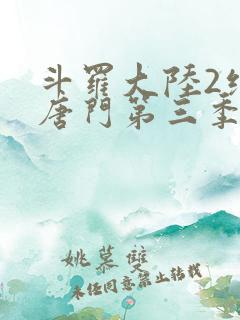 斗羅大陸2絕
唐門第三季
姚慕雙
未任同意禁止转载